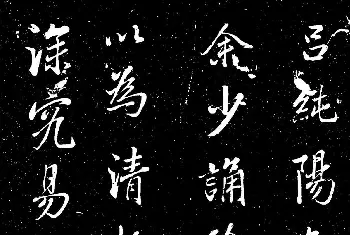 呂純陽
余少誦
以為清
深究易